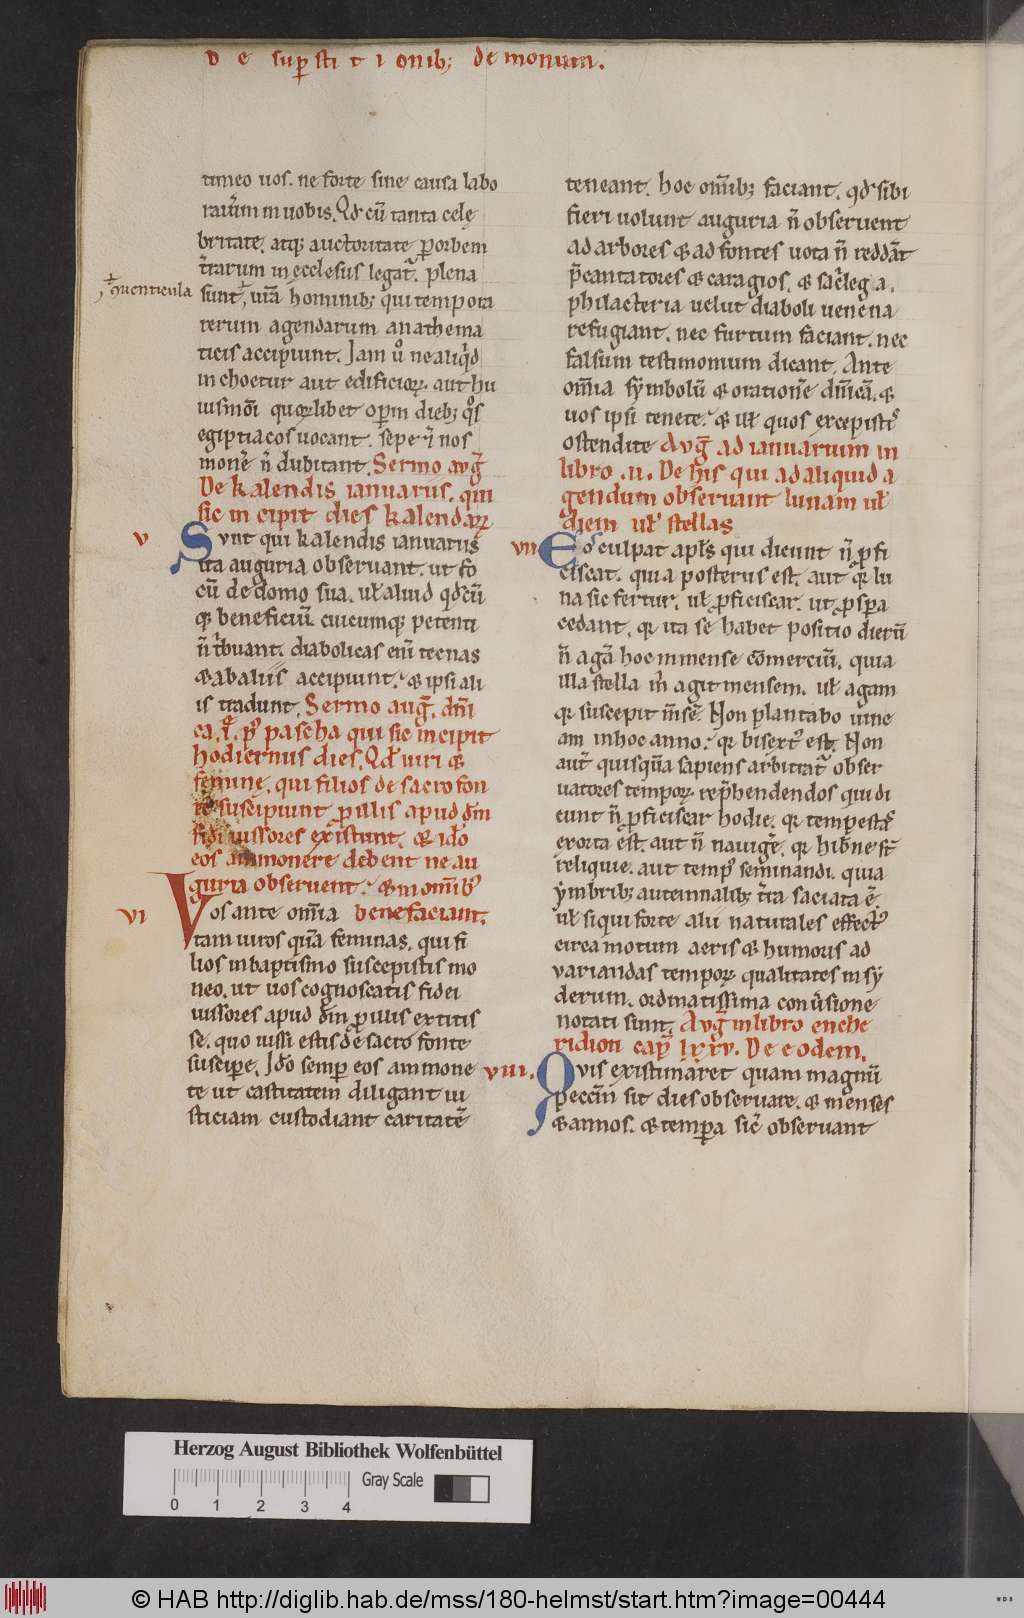 De superstitionib; demonum.
timeo uos. ne forte sine causa labo
rauim in uobis. Qd cū tanta cele
britate. atq; auctoritate p orbem
trarum in ecclesiis legat. plena
quenticula
sunt, ura hominib; qui tempora
rerum agendarum a mathema
ticis accipiunt. Jam u ne aliqd
inchoetur aut edificior. aut hu
iusmōi quorlibet operum dieb; qs
egiptiacos uocant. sepe & nos
monere n dubitant. Sermo aug
De kalendis ianuariis. qui
sic incipit dies kalendar
v
Sunt qui kalendis ianuariis
ita auguria obseruant. ut fo
cū de domo sua. ul aliud qdcū
q; beneficiū. cuicumq; petenti
n tbuant. diabolicas enī teenas
& ab aliis accipiunt. & ipsi ali
is tradunt. Sermo aug. dni
ca .i. p pascha qui sic incipit
hodiernus dies. Qd uiri &
femine. qui filios de sacro fon
te suscipiunt p illis apud dm
fidiiussores existunt. & ido
eos ammonere debent ne au
guria obseruent. & in omib
vi
Vos ante omia bene faciant.
tam uiros qua feminas. qui fi
lios in baptismo suscepistis mo
neo. ut uos cognoscatis fidei
iussores apud dm p illis extitis
se. quo iussi estis de sacro fonte
suscipe. Ido semp eos ammone
te ut castitatem diligant iu
sticiam custodiant caritatē
teneant. hoc omib; faciant. qd sibi
fieri uolunt auguria n obseruent
ad arbores & ad fontes uota n reddāt
pcantatores & caragios. & sacilega.
philacteria uelut diaboli uenena
refugiant. nec furtum faciant. nec
falsum testimonium dicant. Ante
omia symbolū & orationē dnicā. &
uos ipsi tenete. & ul quos excepistis
ostendite Aug ad ianuarium in
libro .ii. De his qui ad aliquid a
gendum obseruant lunam ul
diem ul stellas
vii
Eos culpat apls qui dicunt n pfi
ciscar. quia posterus est. aut qr lu
na sic fertur. ul pficiscar. ut pspa
cedant. qr ita se habet positio dierū
n agā hoc in mense comerciū. quia
illa stella m agit mensem. ul agam
qr suscepit mse. Non plantabo uine
am in hoc anno. qr bisext est. Non
aut quisqua sapiens arbitrat obser
uatores tempor. rephendendos qui di
cunt n pficiscar hodie. qr tempestas
exorta est. aut n nauiget. qr hibne st
reliquie. aut temp seminandi. quia
ymbrib; autumnalib; tra saciata e.
ul siqui forte alii naturales effect
circa motum aeris & humoris ad
variandas tempor. qualitates in sy
derum. ordinatissima conusione
notati sunt. Aug in libro enche
ridion cap lxxv. De eodem.
viii.
Qvis existimaret quam magnū
peccm sit dies obseruare. & menses
& annos. & tempa sic obseruant
Herzog August Bibliothek Wolfenbüttel
Gray Scale
0 1 2 3 4
© HAB http://diglib.hab.de/mss/180-helmst/start.htm?image=00444